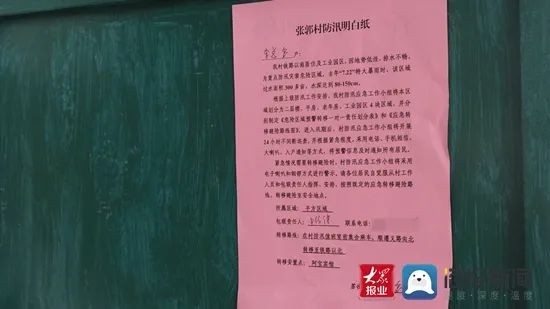 张郭村防汛明白纸
我村铁路以南居住及工业园区，因地势低洼、排水不畅，
为重点防汛灾害危险区域，去年“7.22”特大暴雨时，该区域
过水面积300多亩，水深达到80-150cm。
根据上级防汛工作安排，我村防汛应急工作小组将本区
域划分为二层楼、平房、老年房、工业园区4块区域，并分
别制定《危险区域预警转移一对一责任划分表》和《应急转
移避险路线图》，进入汛期后，村防汛应急工作小组将开展
24小时不间断巡查，并根据紧急程度，采用电话、手机短信、
大喇叭、入户通知等方式，将预警信息及时通知所有居民。
紧急情况需要转移避险时，村防汛应急工作小组将采用
电子喇叭和铜锣方式进行警示，请各位居民自觉服从村工作
人员和包联责任人指挥、安排，按照既定的应急转移避险路
线，转移至安全地点。
所属区域：平方区域
包联责任人： 联系电话：
转移路线：在村防汛值班室前集合乘车，顺遵义路向北
转移至铁路以北
转移安置点：阿宝宾馆
大众
报业
速度·深度·温度